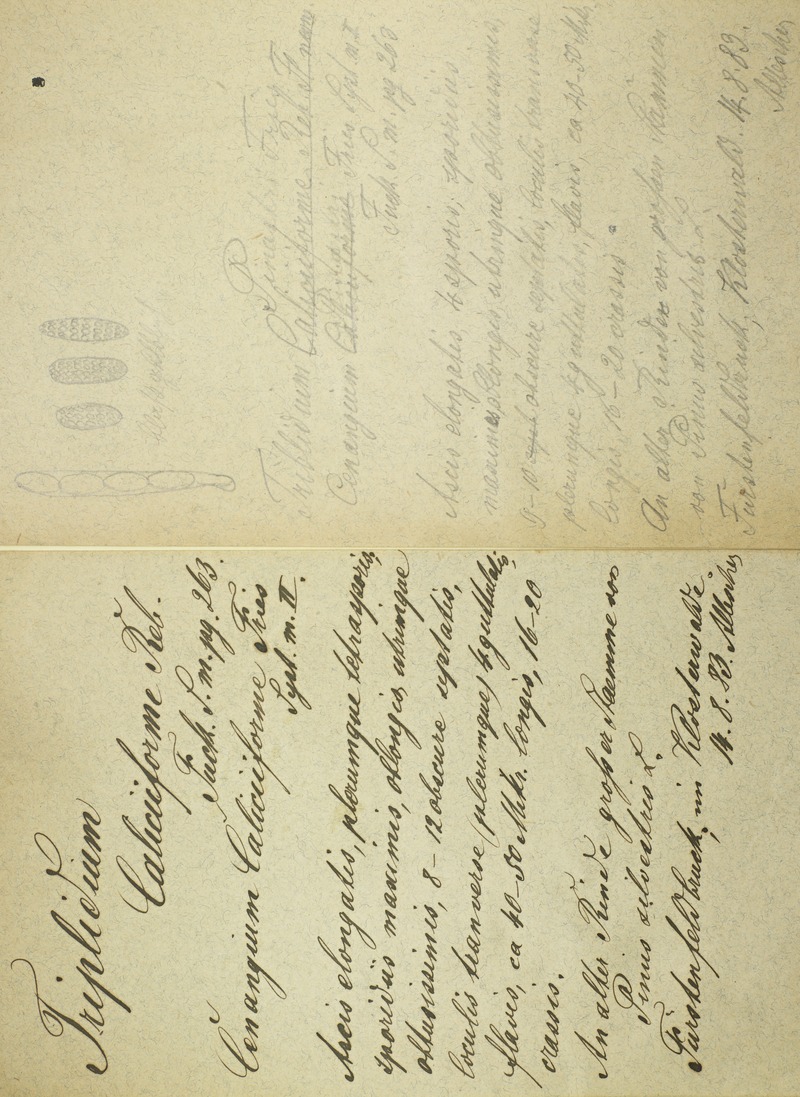 Triblidium
Pinastri Fries
Caliciiforme Rebent
Cenangium Caliciiforme Fries Syst. m. II
Fuck. S. m. pg 263.
Ascis elongatis, 4 sporis; sporidiis
maximis, oblongis utrinque obtusissimis,
9-10 obscure septatis, loculis transverse
plerumque 4 guttulatis, flavis, ca 40-50 Mik.
longis, 16-20 crassis.
An alter Rinde von großem Stammen
von Pinus silvestris L.
Fürstenfeldbruck, Klosterwald. 14.8.83.
Allescher
Triplidium
Caliciiforme Reb.
Fuck. S. m. pg. 263.
Cenangium Caliciiforme Fries
Syst. m. II.
Ascis elongatis, plerumque tetrasporis,
sporidiis maximis, oblongis, utrinque
obtusissimis, 8-12 obscure septatis,
loculis tranverse (plerumque) 4 guttulatis,
flavis, ca 40-50 Mik. longis, 16-20
crassis.
An alter Rinde großer Staemme von
Pinus silvestris L.
Fürstenfeldbruck, im Klosterwalde
14. 8. 83. Allescher